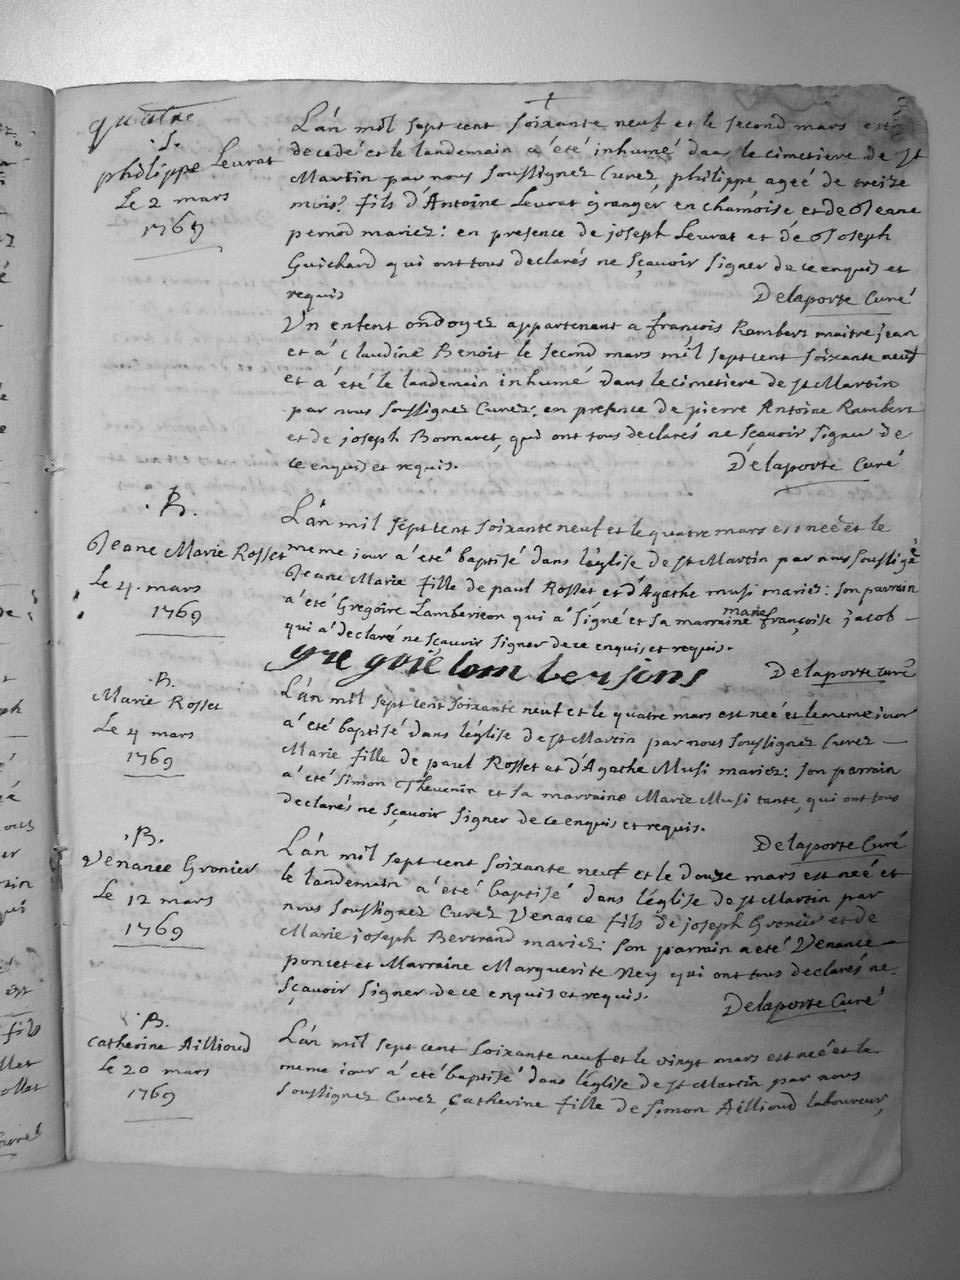 quatre
.S.
philippe Leurat
Le 2 mars
1769
L'an mil sept cent soixante neuf et le second mars est
decedé et le landemain a été inhumé dans le cimetiere de St
Martin par nous soussignez Curez, philippe, ageé de treize
mois? fils d'Antoine Leurat granger en chamoise et de Jeane
pernod mariez: en presence de joseph Leurat et de Joseph
Guichard qui ont tous declarés ne sçavoir signer de ce enquis et
requis Delaporte Curé
Un enfent ondoyez appartenant a françois Rambert maitre jean
et a Claudine Benoit le second mars mil sept cent soixante neuf
et a été le landemain inhumé dans le cimetiere de St Martin
par nous soussignez Curez, en presence de pierre Antoine Rambert
et de joseph Bornaret, qui ont tous declarés ne sçavoir signer de
ce enquis et requis. Delaporte Curé
.B.
Jeane Marie Rosset
Le 4. mars
1769
L'an mil sept cent soixante neuf et le quatre mars est neé et le
meme jour a été baptisé dans l'église de St Martin par nous soussigné
Jeane Marie fille de paul Rosset et d'Agathe musi mariez: son parrain
a été Gregoire Lamberson qui a signé et sa marraine marie françoise jacob
qui a declaré ne sçavoir signer de ce enquis et requis.
gre goie lom bersons Delaporte curé
.B.
Marie Rosset
Le 4 mars
1769
L'an mil sept cent soixante neuf et le quatre mars est neé et le meme jour
a été baptisé dans l'église de St Martin par nous soussignez Curez
Marie fille de paul Rosset et d'Agathe Musi mariez: son parrain
a été simon Thevenin et sa marraine Marie Musi tante, qui ont tous
declarés ne sçavoir signer de ce enquis et requis.
Delaporte Curé
.B.
Venance Gronier
Le 12 mars
1769
L'an mil sept cent soixante neuf et le douze mars est neé et
le landemain a été baptisé dans l'église de St Martin par
nous soussignez Curez Venance fils de joseph Gronier et de
Marie joseph Bertrand mariez: son parrain a eté Venance
poncet et Marraine Marguerite Ney qui ont tous declarés ne
sçavoir signer de ce enquis et requis. Delaporte Curé
.B.
Catherine Aillioud
Le 20 mars
1769
L'an mil sept cent soixante neuf et le vingt mars est neé et le
meme jour a été baptisé dans l'église de St Martin par nous
soussignez Curez, Catherine fille de simon Aillioud laboureur,